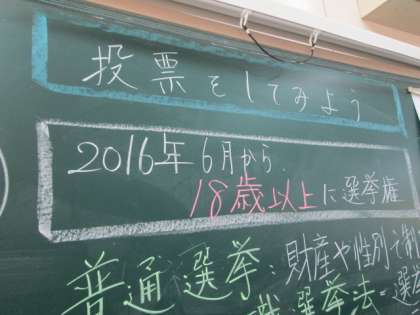 投票をしてみよう
2016年6月から
18歳以上に選挙権
普通選挙:財産や性別で制
選挙法=選